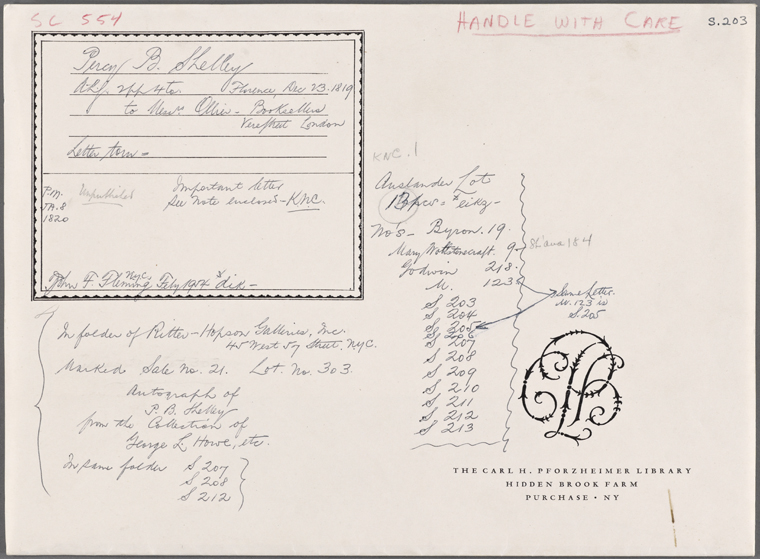 SC 554
HANDLE WITH CARE
S.203
Percy B. Shelley
A.L.S. 2pp 4to. Florence, Dec 23. 1819
to Messrs. Ollier - Booksellers
Vere Street London
Letter torn -
P.M.
JA. 8
1820
Unpublished
Important letter
See Note enclosed - KNC.
John F. Fleming, N.Y.C. Feb 1954 $ dik -
In folder of Ritter - Hopson Galleries, Inc.
45 West 57 Street, NYC.
Marked Sale No. 21. Lot. No. 303.
Autograph of
P. B. Shelley
from the Collection of
George L. Howe, etc.
In same folder S 207
S 208
S 212
KNC. 1
Auslander Lot
13 pcs = $ eikz -
No's - Byron. 19.
Mary Wollstonecraft. 9
Godwin 218.
M. 123
S 203
S 204
S 205
S 206
S 207
S 208
S 209
S 210
S 211
S 212
S 213
184
Same letter.
M. 123 is
S. 205
THE CARL H. PFORZHEIMER LIBRARY
HIDDEN BROOK FARM
PURCHASE • NY